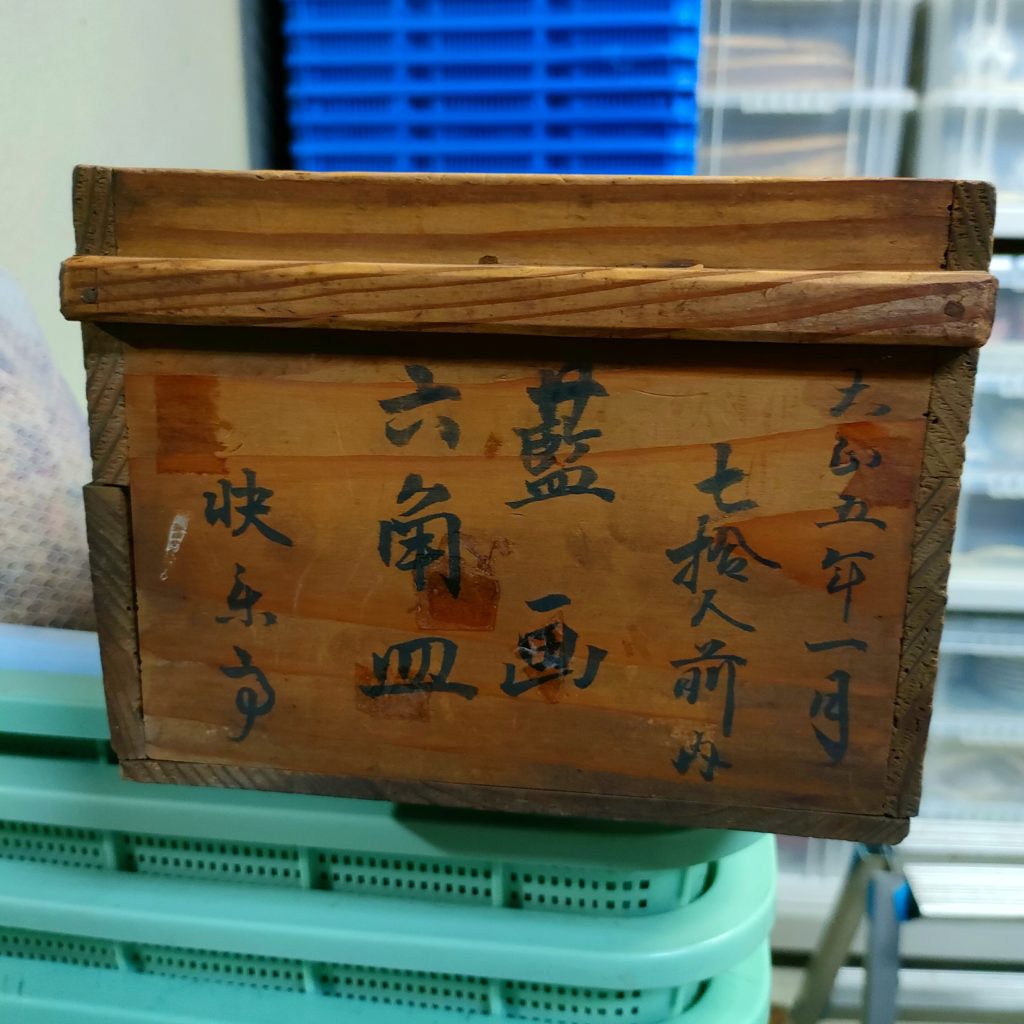 大正五年一月
七拾人前内
藍画
六角皿
快楽亭